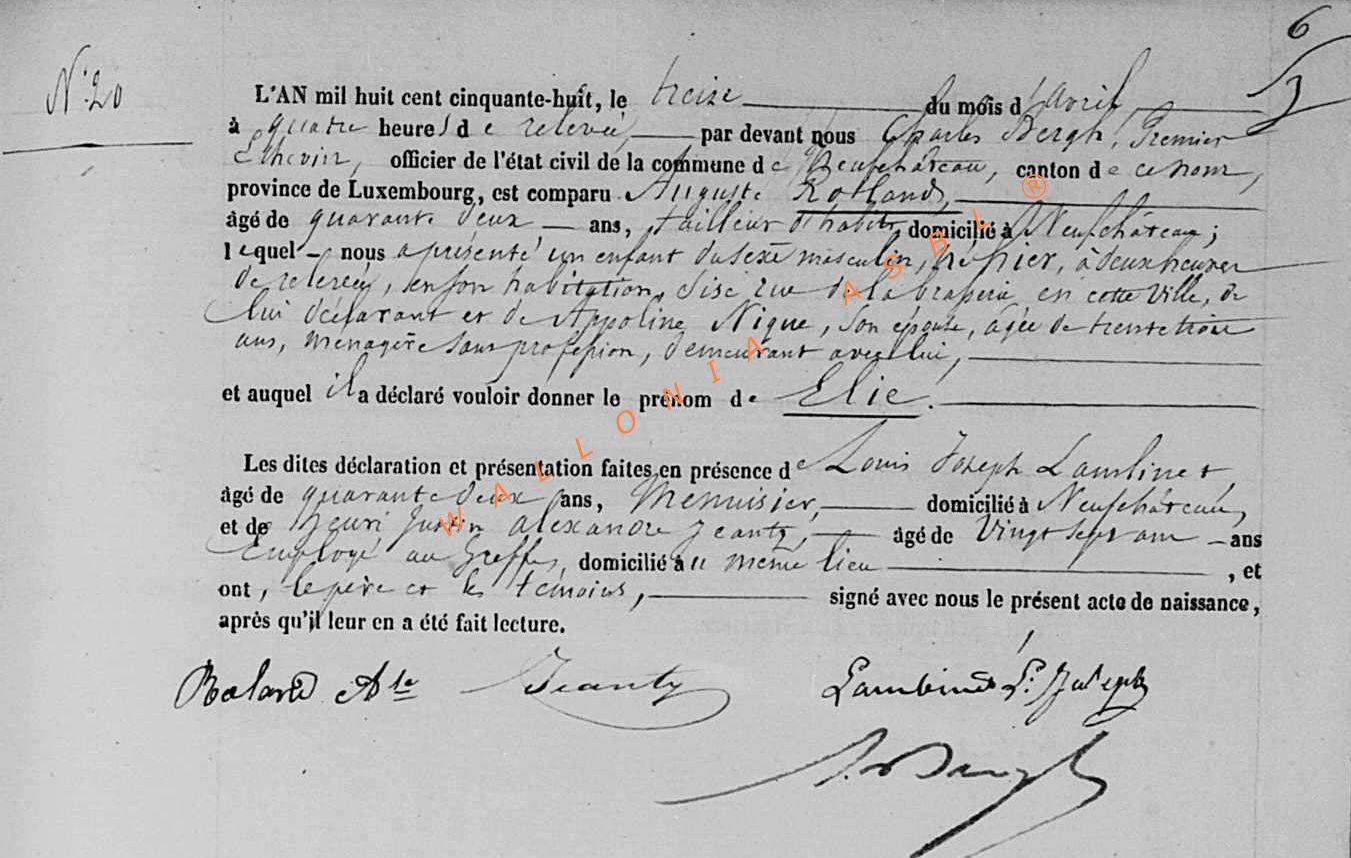 6
3
N° 20
L'AN mil huit cent cinquante-huit, le treize du mois d'avril
à quatre heures de relevée, par devant nous Charles Bergh, Premier
Echevin, officier de l'état civil de la commune de Neufchâteau, canton de ce nom,
province de Luxembourg, est comparu Auguste Rolland,
âgé de quarante deux ans, tailleur d'habits, domicilié à Neufchâteau;
lequel nous a présenté un enfant du sexe masculin, né hier, à deux heures
de relevée, en son habitation, sise rue de la brasserie en cette Ville, de
lui déclarant et de Appoline Nique, son épouse, agée de trente trois
ans, ménagère sans profession, demeurant avec lui,
et auquel il a déclaré vouloir donner le prénom de Elie.
Les dites déclaration et présentation faites en présence de Louis Joseph Lambinet,
âgé de quarante deux ans, Menuisier, domicilié à Neufchâteau,
et de Henri Justin Alexandre Jeanty, âgé de Vingt sept ans ans
Employé au Greffe, domicilié au même lieu, et
ont, le père et les témoins, signé avec nous le présent acte de naissance,
après qu'il leur en a été fait lecture.
Roland Ate Jeanty Lambinet L. Joseph
WALLONIA ASBL ®